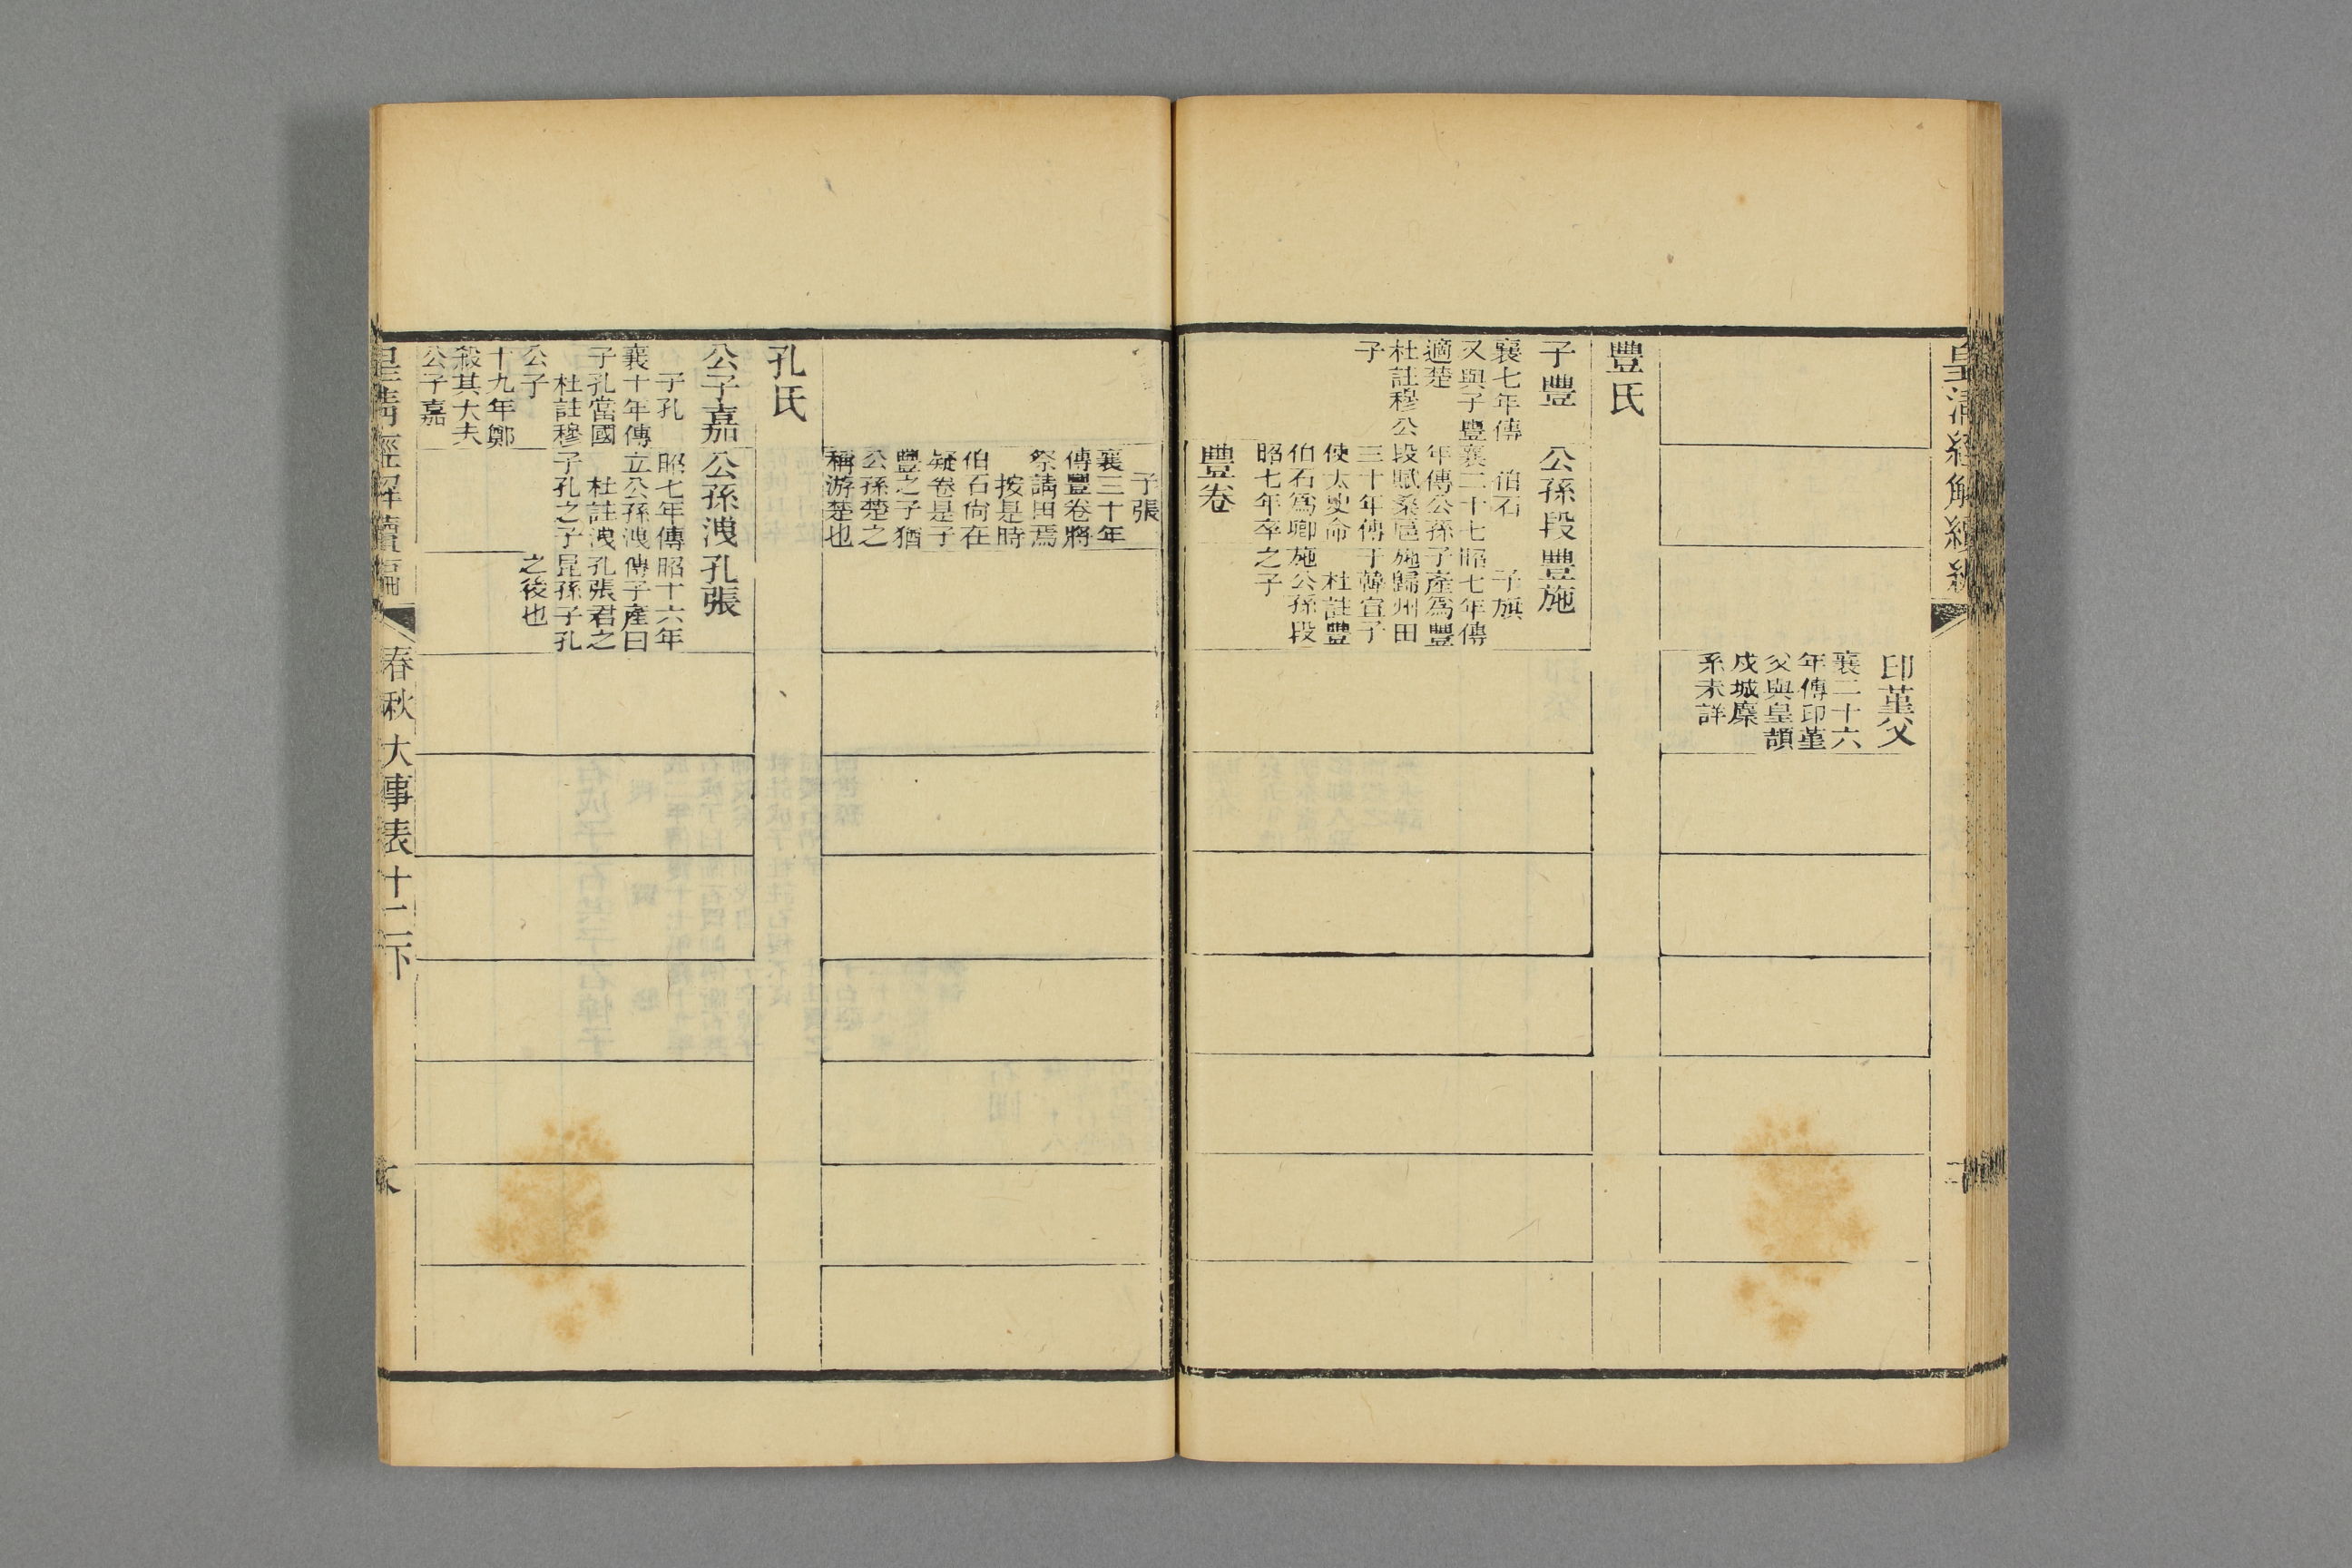 皇清經解續編
印菫父
襄二十六
年傳印菫
父與皇頡
戍城麇
系未詳
豐氏
子豐
襄七年傳
又與子豐
適楚
杜註穆公
子
公孫段
伯石
襄二十七
年傳公孫
段賦桑扈
三十年傳
使太史命
伯石爲卿
昭七年卒
豐施
子旗
昭七年傳
子產爲豐
施歸州田
于韓宣子
杜註豐
施公孫段
之子
豐卷
子張
襄三十年
傳豐卷將
祭請田焉
按是時
伯石尙在
疑卷是子
豐之子猶
公孫楚之
稱游楚也
孔氏
公子嘉
子孔
襄十年傳
子孔當國
杜註穆
公子
十九年鄭
殺其大夫
公子嘉
公孫洩
昭七年傳
立公孫洩
杜註洩
子孔之子
孔張
昭十六年
傳子產曰
孔張君之
昆孫子孔
之後也
皇清經解續編
春秋大事表十二下